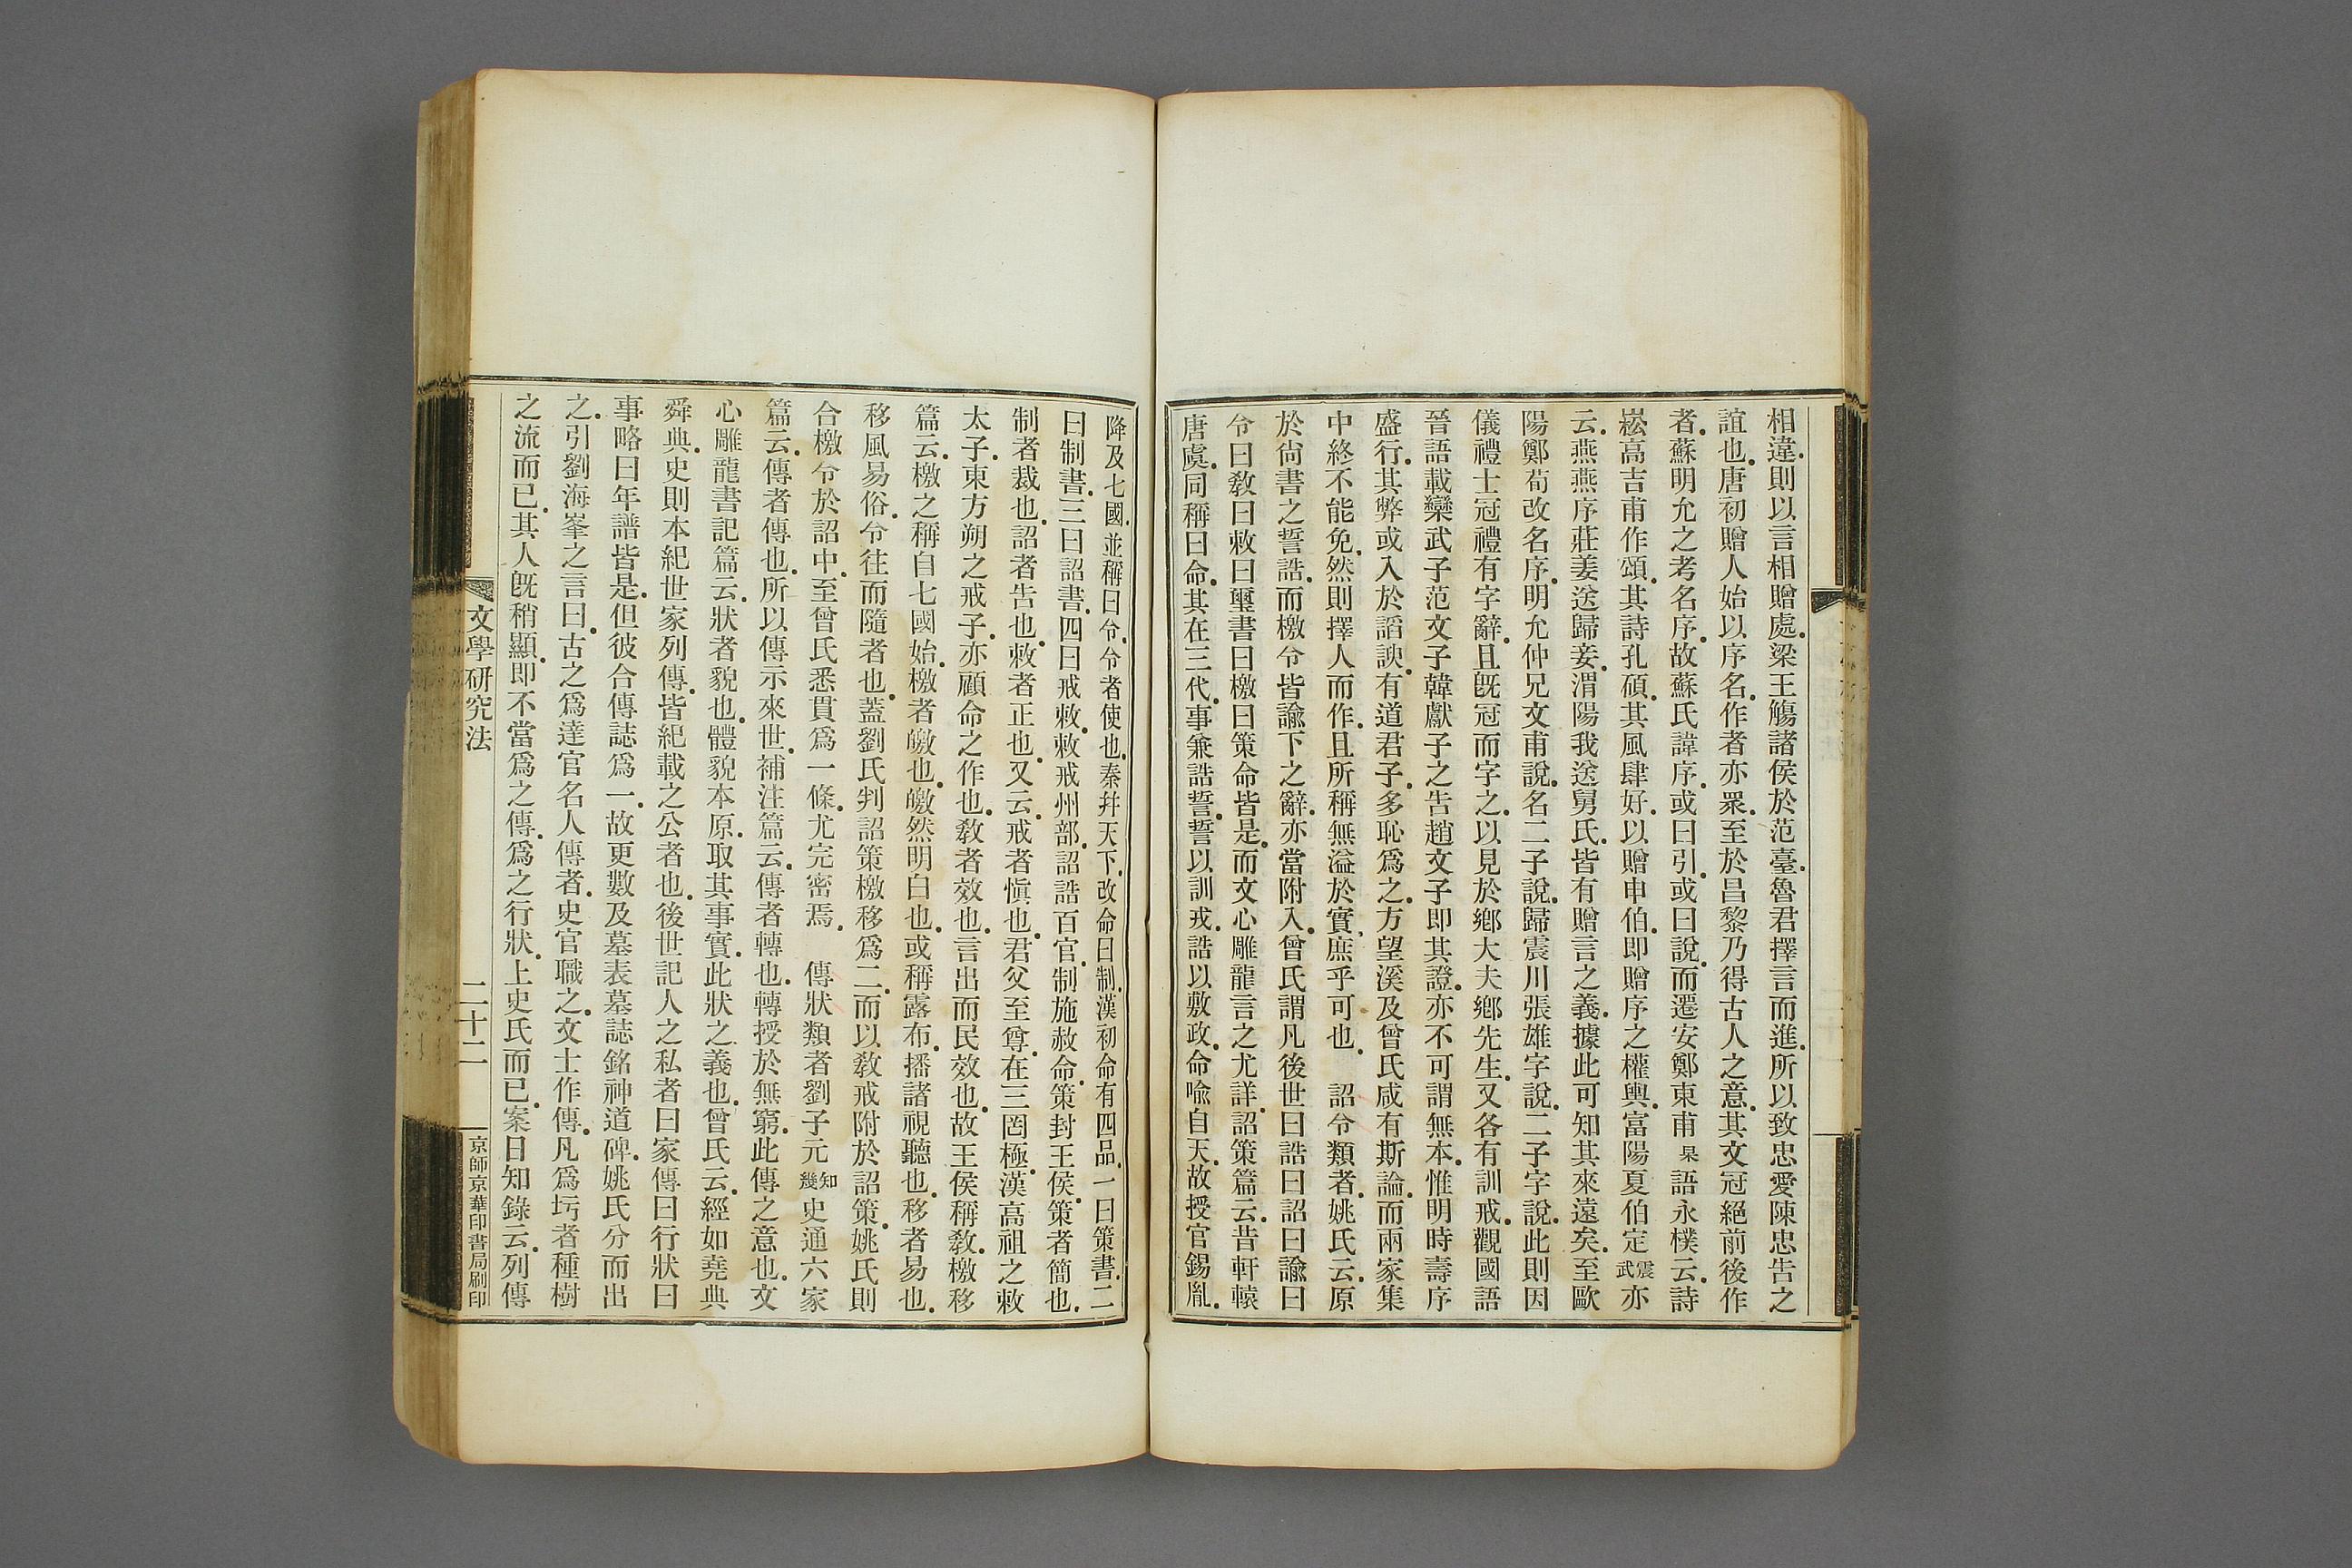 相違則以言相贈處梁王觴諸侯於范臺魯君擇言而進所以致忠愛陳忠告之
誼也唐初贈人始以序名作者亦眾至於昌黎乃得古人之意其文冠絕前後作
者蘇明允之考名序故蘇氏諱序或曰引或曰說而遷安鄭東甫杲語永樸云詩
崧高吉甫作頌其詩孔碩其風肆好以贈申伯即贈序之權輿富陽夏伯定震武亦
云燕燕序莊姜送歸妾渭陽我送舅氏皆有贈言之義據此可知其來遠矣至歐
陽鄭荀改名序明允仲兄文甫說名二子說歸震川張雄字說二子字說此則因
儀禮士冠禮有字辭且既冠而字之以見於鄉大夫鄉先生又各有訓戒觀國語
晉語載欒武子范文子韓獻子之告趙文子即其證亦不可謂無本惟明時壽序
盛行其弊或入於諂諛有道君子多恥為之方望溪及曾氏咸有斯論而兩家集
中終不能免然則擇人而作且所稱無溢於實庶乎可也　詔令類者姚氏云原
於尚書之誓誥而檄令皆諭下之辭亦當附入曾氏謂凡後世曰誥曰詔曰諭曰
令曰教曰敕曰璽書曰檄曰策命皆是而文心雕龍言之尤詳詔策篇云昔軒轅
唐虞同稱曰命其在三代事兼誥誓誓以訓戎誥以敷政命喻自天故授官錫胤
降及七國並稱曰令令者使也秦并天下改命曰制漢初命有四品一曰策書二
曰制書三曰詔書四曰戒敕敕戒州部詔誥百官制施赦命策封王侯策者簡也
制者裁也詔者告也敕者正也又云戒者慎也君父至尊在三罔極漢高祖之敕
太子東方朔之戒子亦顧命之作也教者效也言出而民效也故王侯稱教檄移
篇云檄之稱自七國始檄者皦也皦然明白也或稱露布播諸視聽也移者易也
移風易俗令往而隨者也蓋劉氏判詔策檄移為二而以教戒附於詔策姚氏則
合檄令於詔中至曾氏悉貫為一條尤完密焉　傳狀類者劉子元知幾史通六家
篇云傳者傳也所以傳示來世補注篇云傳者轉也轉授於無窮此傳之意也文
心雕龍書記篇云狀者貌也體貌本原取其事實此狀之義也曾氏云經如堯典
舜典史則本紀世家列傳皆紀載之公者也後世記人之私者曰家傳曰行狀曰
事略曰年譜皆是但彼合傳誌為一故更數及墓表墓誌銘神道碑姚氏分而出
之引劉海峯之言曰古之為達官名人傳者史官職之文士作傳凡為圬者種樹
之流而已其人既稍顯即不當為之傳為之行狀上史氏而已案日知錄云列傳
文學研究法
二十二
京師京華印書局刷印